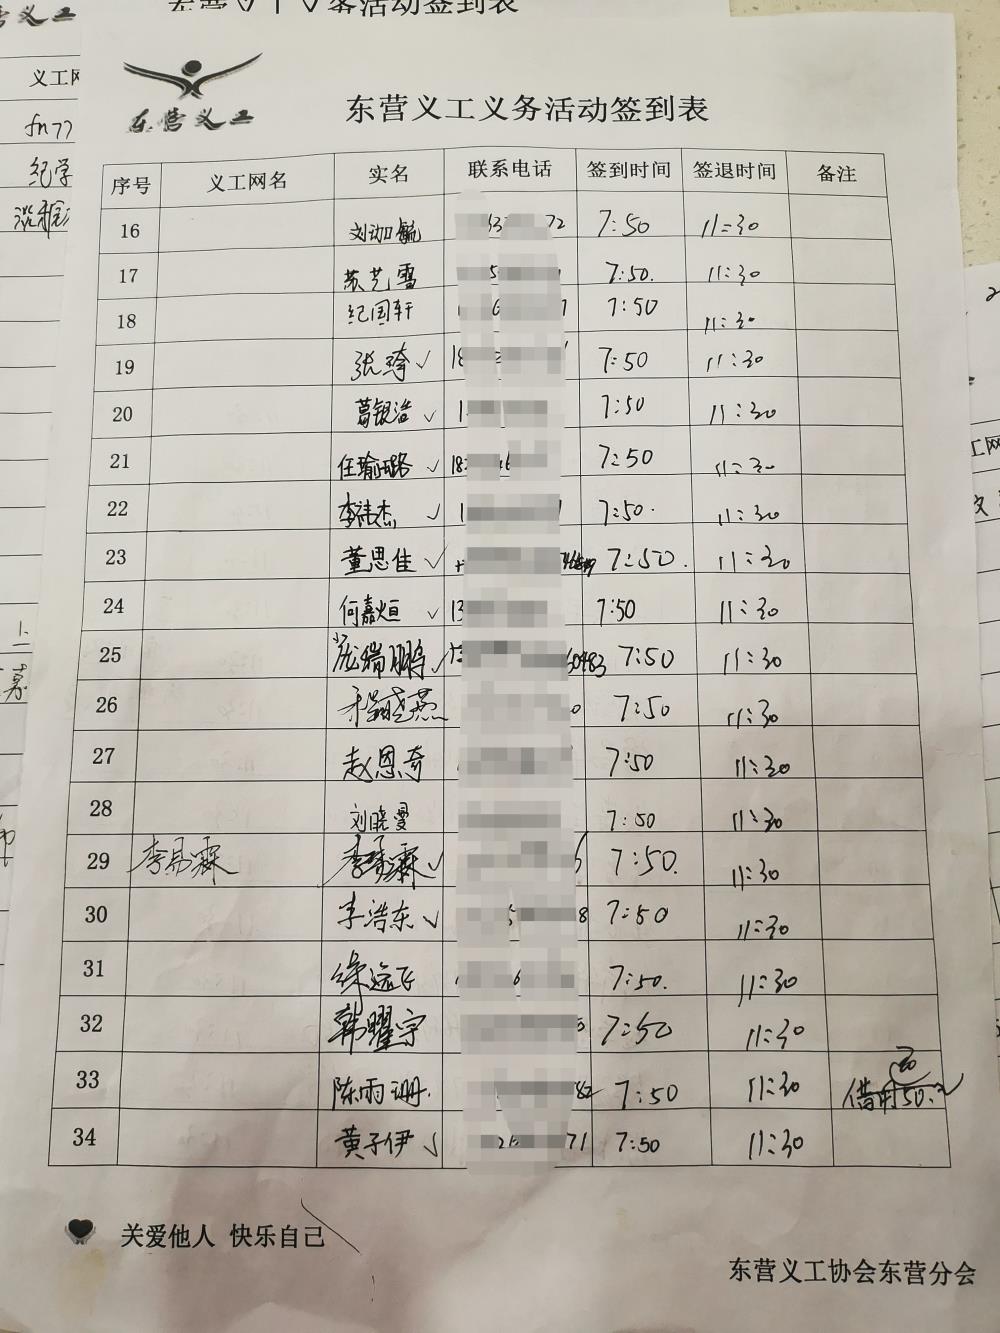 务活动签到表
义工网
fn77
纪学
东营义工
东营义工义务活动签到表
序号 义工网名 实名 联系电话 签到时间 签退时间 备注
16 刘珈毓 72 7:50 11:30
17 苏艺雪 7:50. 11:30
18 纪国轩 7:50 11:30
19 张琦 ✓ 18 7:50 11:30
20 葛银浩 ✓ 1 7:50 11:30
21 任瑜璐 ✓ 18 7:50 11:30
22 李祎杰 ✓ 1 7:50. 11:30
23 董思佳 ✓ 7:50. 11:30
24 何嘉烜 ✓ 13 7:50 11:30
25 庞瑞鹏 ✓ 60483 7:50 11:30
26 程晓燕 0 7:50 11:30
27 赵恩奇 7:50 11:30
28 刘晓雯 7:50 11:30
29 李易霖 李易霖 ✓ 7:50. 11:30
30 李浩东 ✓ 8 7:50 11:30
31 徐远飞 6 7:50. 11:30
32 韩曜宇 7:50 11:30
33 陈雨珊. 82 7:50 11:30 借用50
34 黄子伊 ✓ 71 7:50 11:30
关爱他人 快乐自己
东营义工协会东营分会